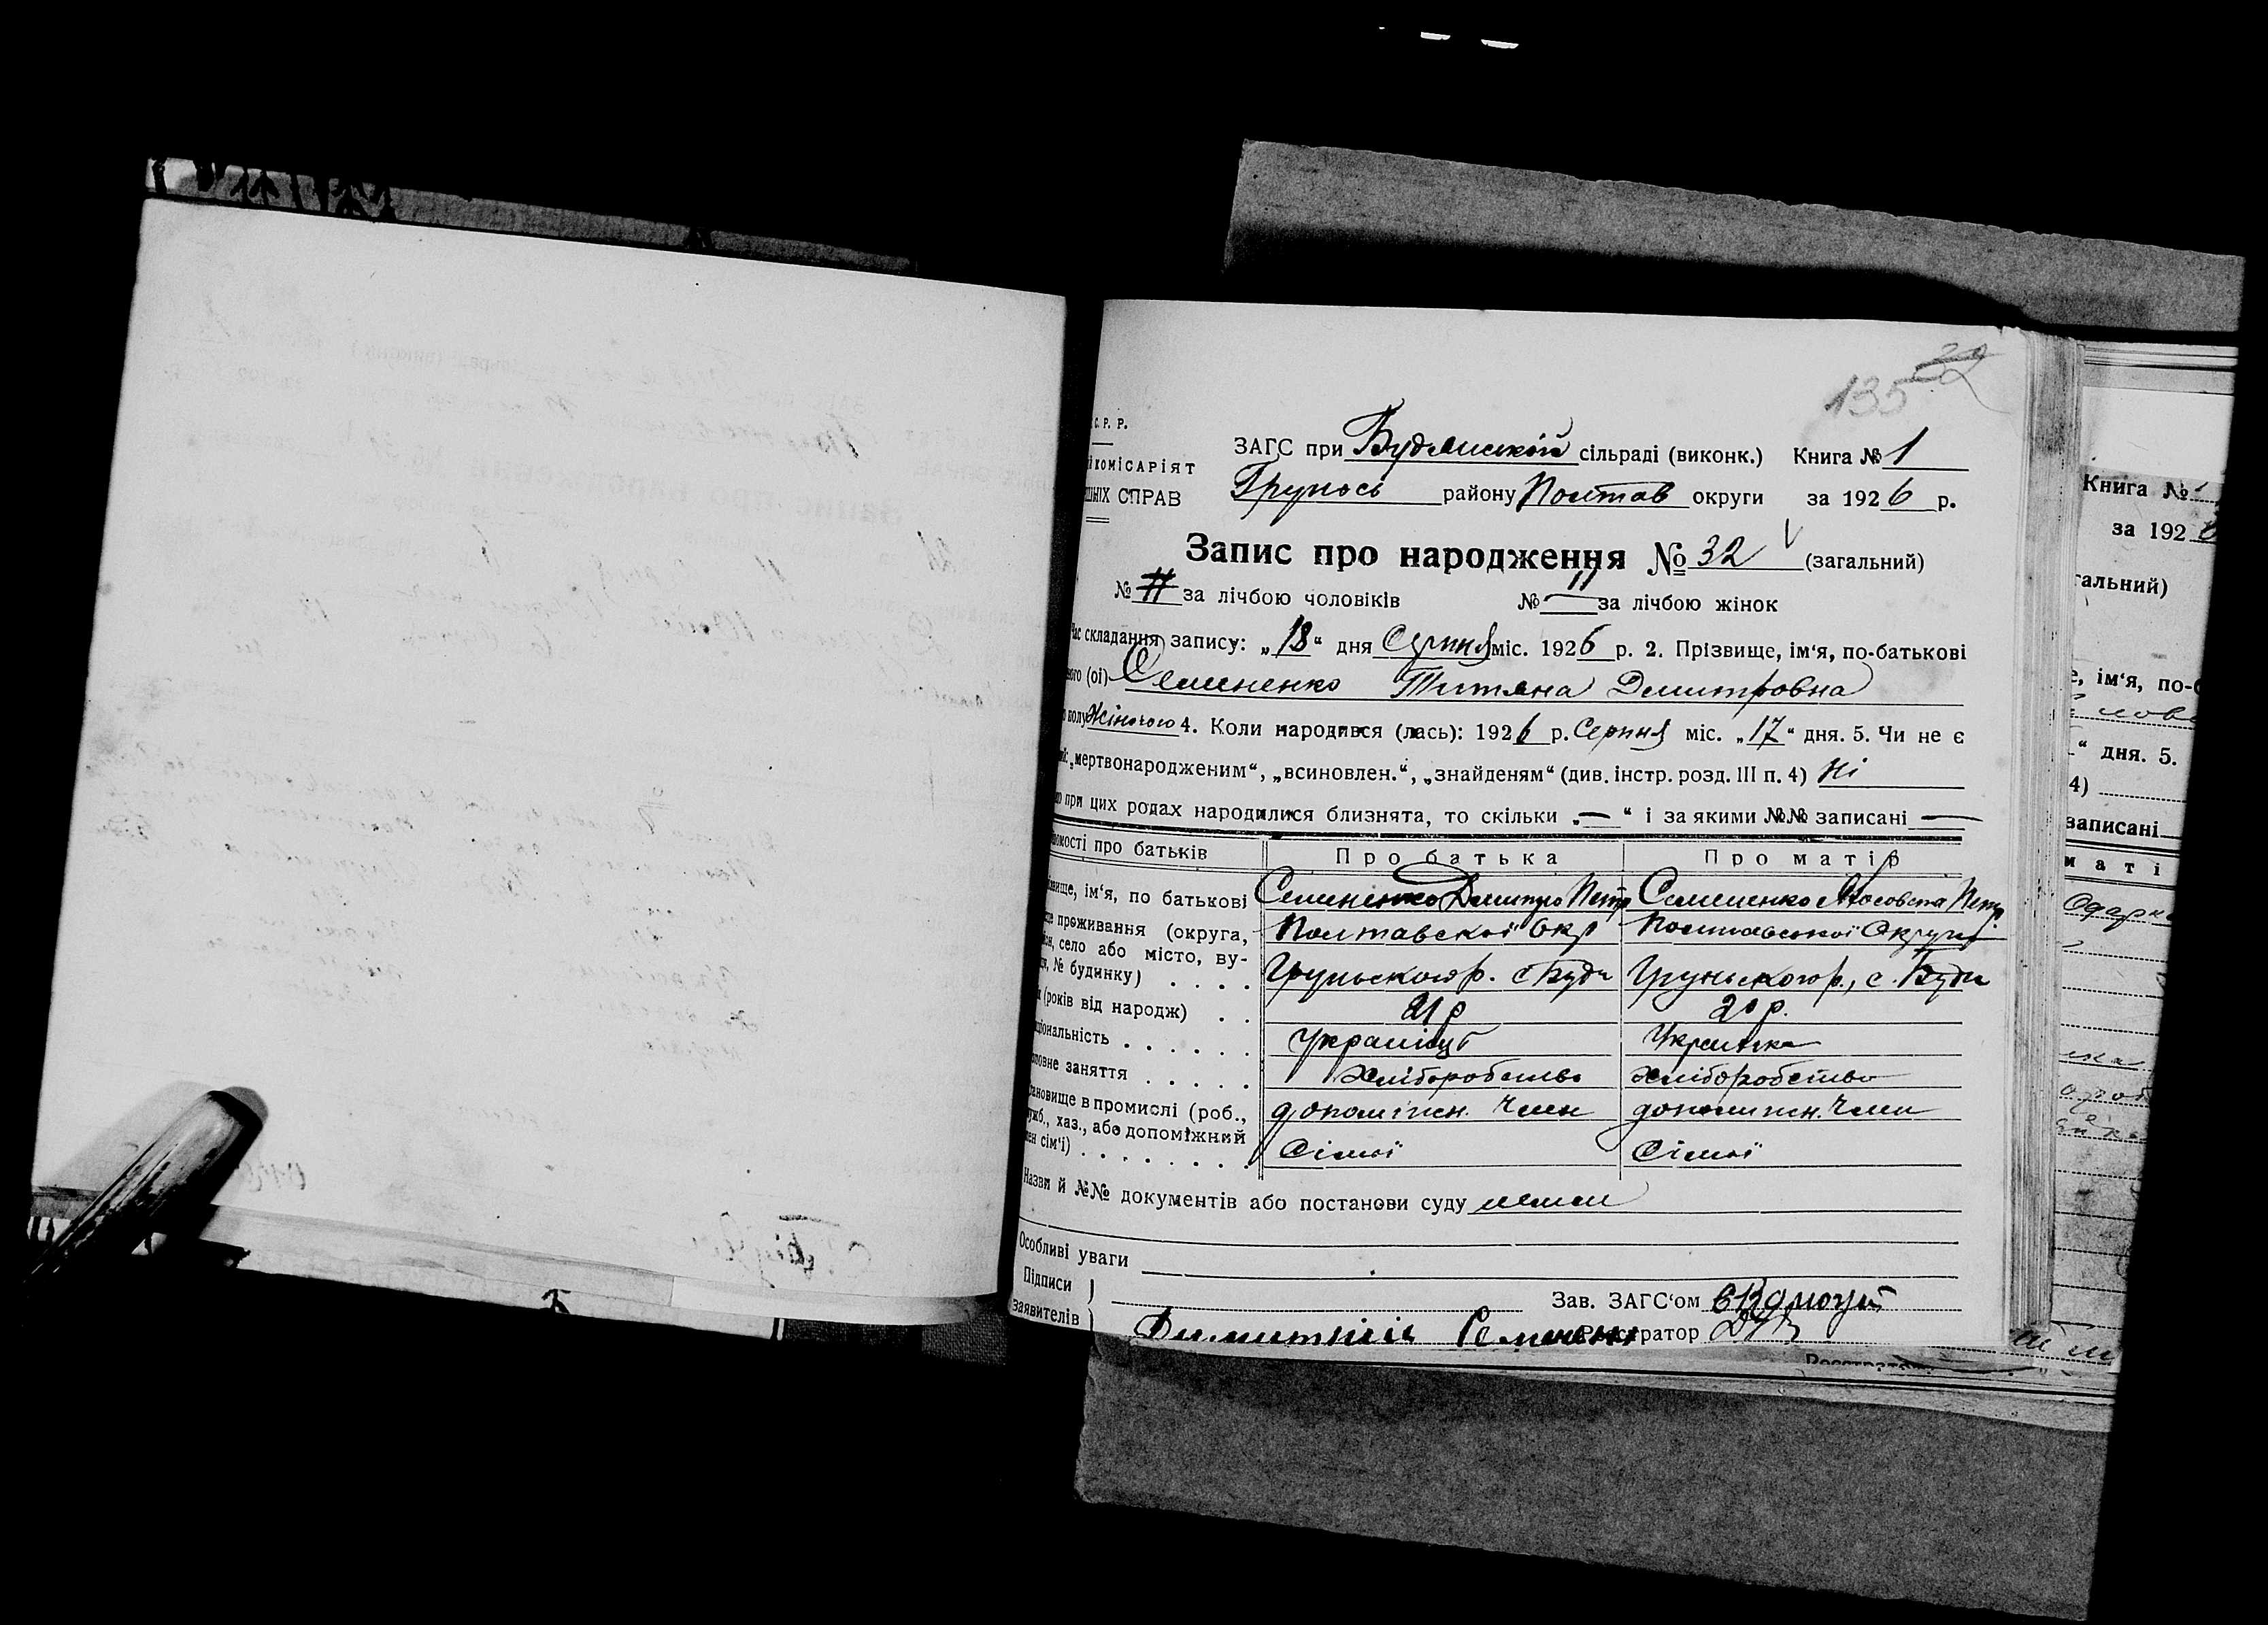 135 32
С. Р. Р.
ЗАГС при Будянській сільраді (виконк.) Книга № 1
КОМІСАРІЯТ
Грунсь району Полтав округи за 1926 р.
СПРАВ
Запис про народження № 32 (загальний)
№ за лічбою чоловіків № 11 за лічбою жінок
складання запису: „18“ дня Серпня міс. 1926 р. 2. Прізвище, ім‘я, по-батькові
(ої) Семененко Титяна Демитровна
полу Жіночого 4. Коли народився (лась): 1926 р. Серпня міс. „17“ дня. 5. Чи не є
„мертвонародженим“, „всиновлен.“, „знайденям“ (див. інстр. розд. III п. 4) Ні
при цих родах народилися близнята, то скільки „—“ і за якими №№ записані —
про батьків Про батька Про матір
ім‘я, по батькові Семененко Демитро Петр Семененко Петр.
проживання (округа, Полтавської Окр Полтавської Округи
село або місто, ву-
№ будинку) . . . . Груньского р. с Буди Груньского р., с. Буди
(років від народж) . . 21 р 20 р.
. . . . . . Українця Українка
заняття . . . . . Хліборобство хліборобство
в промислі (роб., допоміжн. Член допоміжн. Член
хаз., або допоміжний
сім‘ї) . . . . . . . . Сімиї Сімиї
Назви й №№ документів або постанови суду немаи
Особливі уваги
Підписи
Зав. ЗАГС‘ом
заявителів
Книга №
за 192
гальний)
ім‘я, по-
“ дня. 5.
4)
записані
м а т і
Одарка